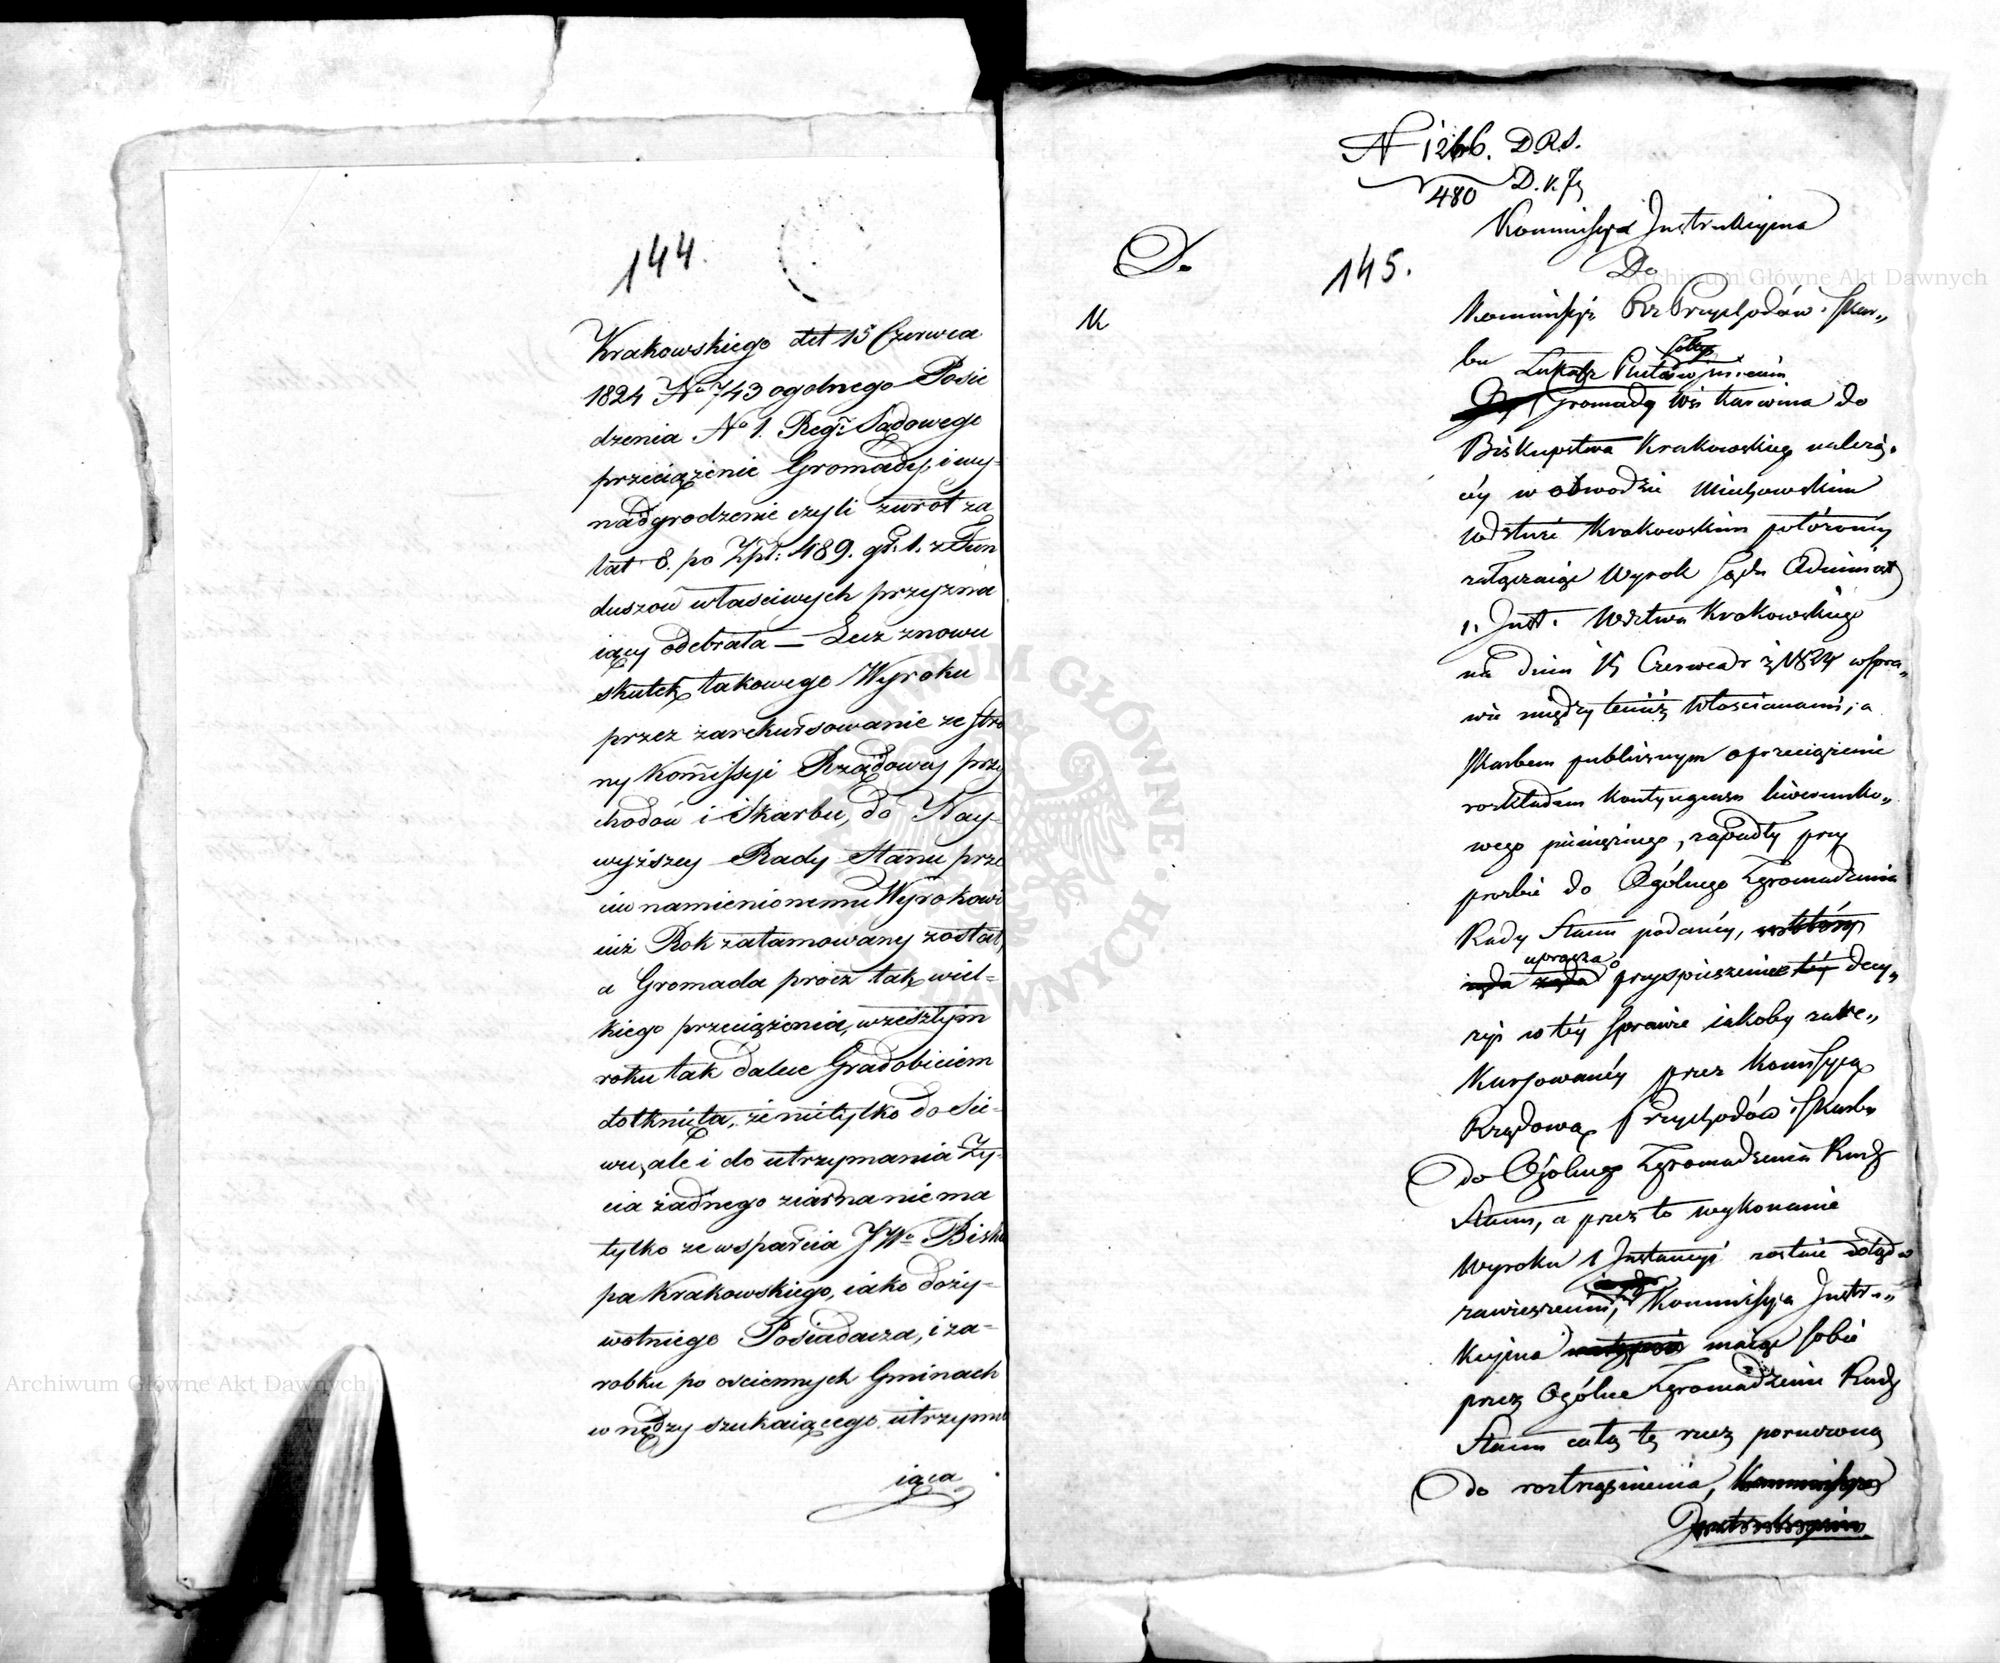 144.
Krakowskiego dtt 15 Czerwca
1824 No 743 ogolnego Posie
dzenia No 1. Regi Sądowego
przeciążenie Gromady, i wy-
nadgrodzenie czyli zwrot za
lat 8. po Złpl: 489. gr. 1. z Fun
duszów właściwych przyzna
iący odebrała — Lecz znowu
skutek takowego Wyroku
przez zarekursowanie ze stro
ny Kommissyi Rządowey przy
chodów i Skarbu, do Nay-
wyższey Rady Stanu prze
ciw namienionemu Wyrokowi
iuż Rok zatamowany został,
a Gromada prócz tak wiel-
kiego przeciążenia, w zeszłym
roku tak dalece Gradobiciem
dotknięta, że nietylko do sie-
wu, ale i do utrzymania Ży-
cia żadnego ziarna nie ma
tylko ze wsparcia JWo Bisku
pa Krakowskiego, iako doży-
wotniego Posiadacza, i za-
robku po ościennych Gminach
w nędzy szukaiącego utrzymu
iąca
N 1266. D.R.S.
480 D.K.Js
Kommissya Instrukcyina
Do
145.
Do
K
Kommissyi Rz Przychodów i Skar„
bu
Łukasz imieniem
Gromady Wsi Karwina do
Biskupstwa Krakowskiego należą„
céy w obwodzie Miechowskim
Wdztwie Krakowskim położonéy
załączaiąc Wyrok Sądu Administ
1. Inst. Wdztwa Krakowskiego
na dniu 15 Czerwca r z 1824 w spra„
wie między temiż Włościanami, a
Skarbem publicznym o przeciążenie
rozkładem Kontyngensu liwerunko„
wego pieniężnego, zapadły przy
prośbie do Ogólnego Zgromadzenia
Rady Stanu podanéy,
uprasza o
przyspieszenie decy„
zyi w téy sprawie iakoby zare„
kursowanéy przez Komissyą
Rządową Przychodów i Skarbu
do Ogólnego Zgromadzenia Rady
Stanu, a przez to wykonanie
Wyroku 1 Instancyi zostaie dotąd w
zawieszeniu, Kommissya Instru„
kcyina maiąc sobie
przez Ogólne Zgromadzenie Rady
Stanu całą tę rzecz poruczoną
do roztrząśnienia, Kommissya
Instrukcyina
Archiwum Główne Akt Dawnych
Archiwum Główne Akt Dawnych
ARCHIWUM GŁÓWNE AKT DAWNYCH